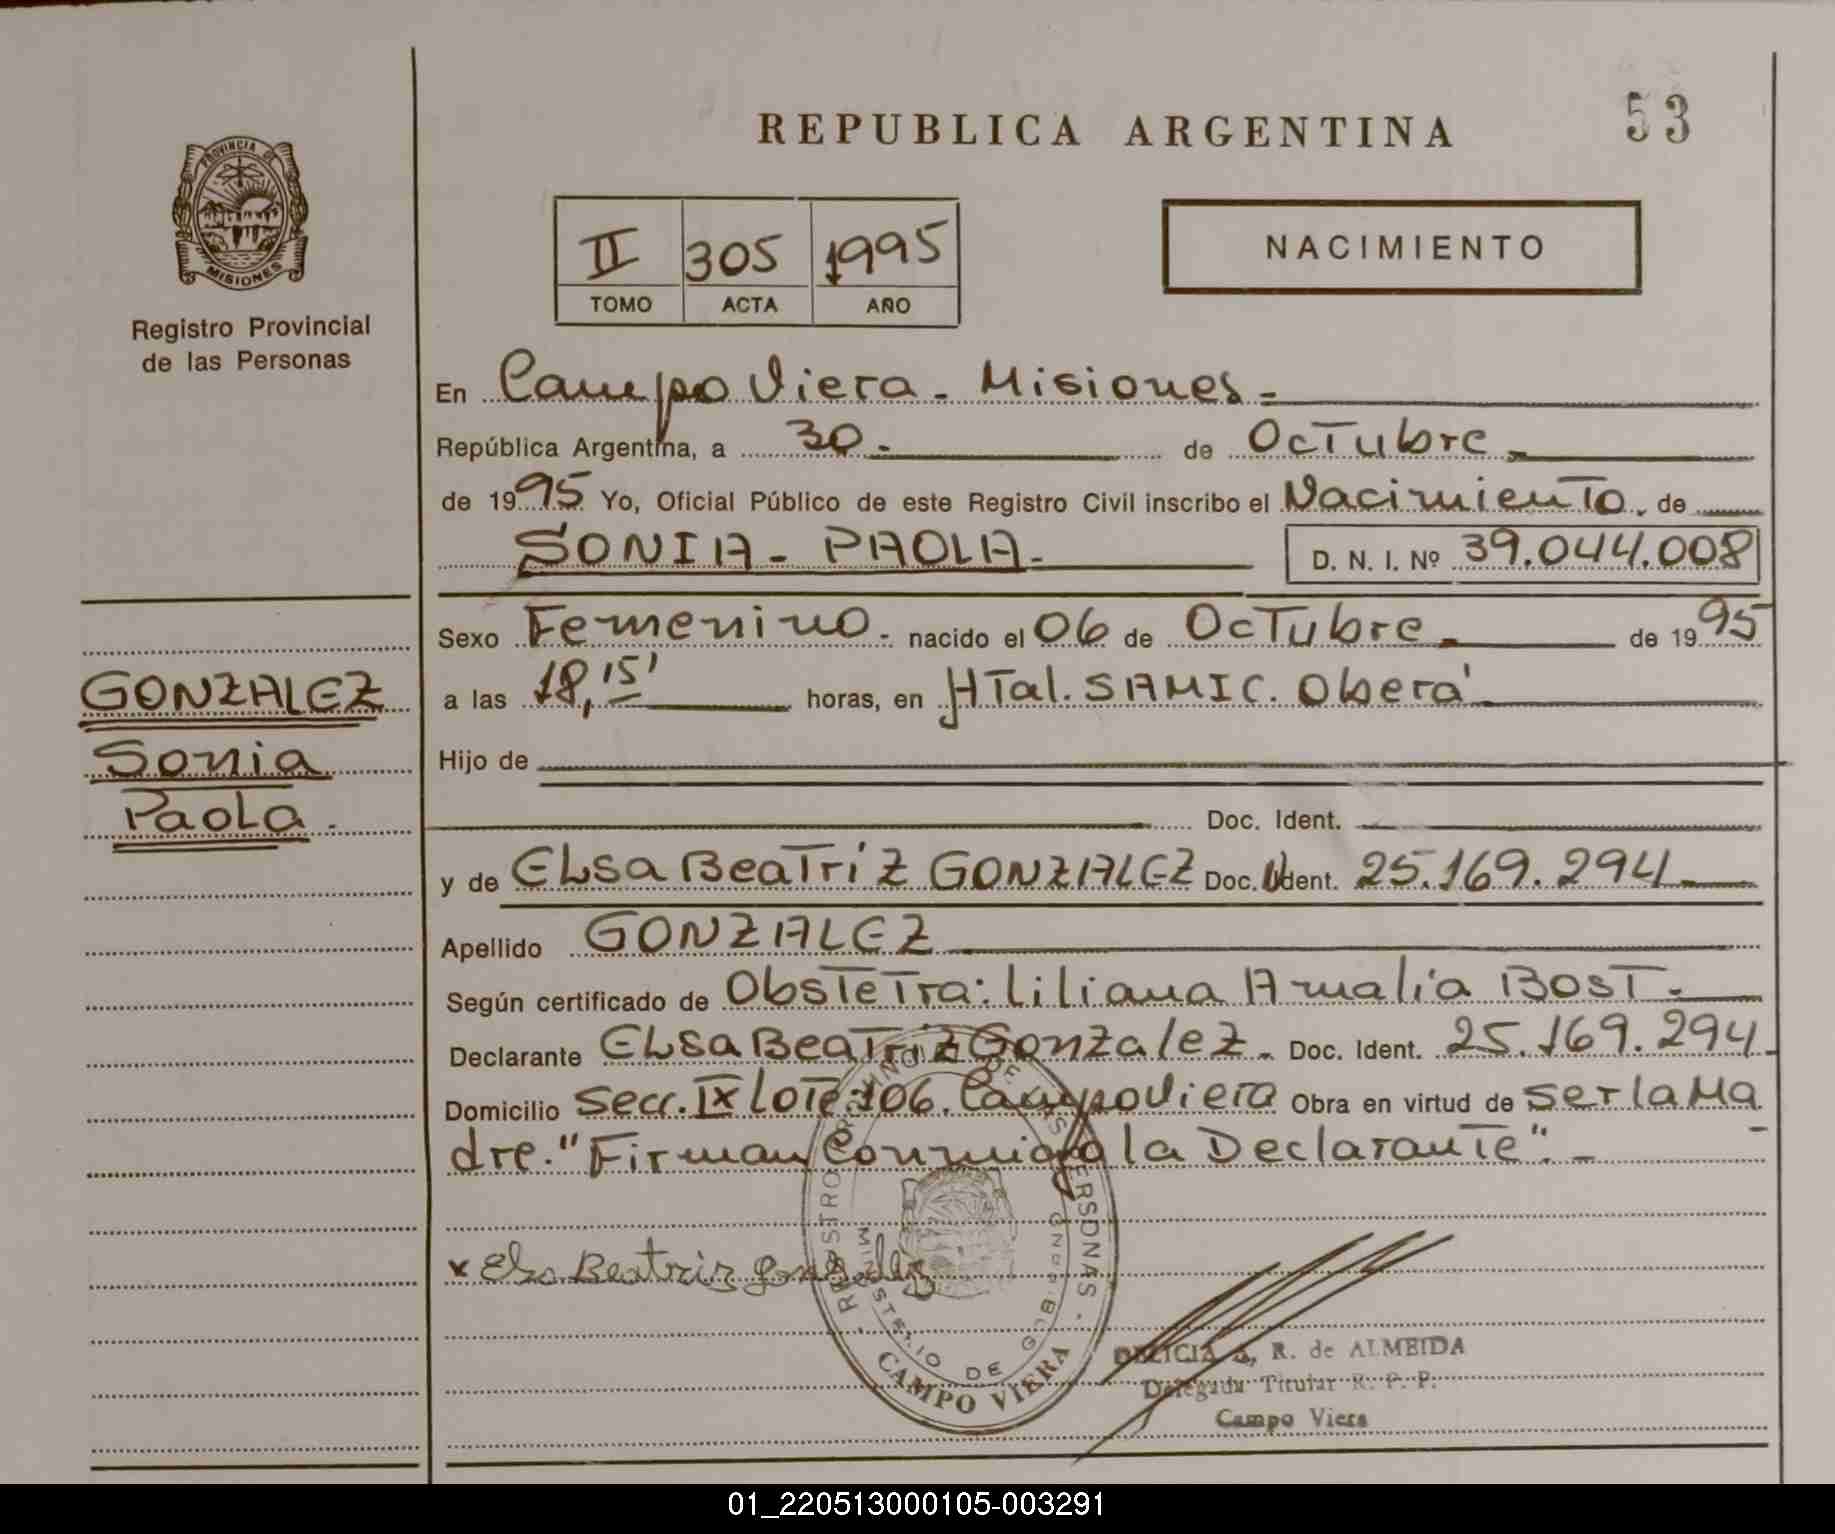 REPUBLICA ARGENTINA
53
PROVINCIA DE
MISIONES
Registro Provincial
de las Personas
II 305 1995
TOMO ACTA AÑO
NACIMIENTO
En Campo Viera - Misiones =
República Argentina, a 30 - de Octubre -
de 1995 Yo, Oficial Público de este Registro Civil inscribo el Nacimiento. de
SONIA - PAOLA - D. N. I. Nº 39.044.008
Sexo Femenino - nacido el 06 de Octubre - de 1995
a las 18,15' horas, en HTal. SAMIC. Oberá
Hijo de
Doc. Ident.
y de ELsa BeaTriZ GONZALEZ Doc. Ident. 25.169.294
Apellido GONZALEZ
Según certificado de ObsTeTra: Liliana Amalia BOST -
Declarante ELsa BeaTriZ GonzaleZ - Doc. Ident. 25.169.294
Domicilio Secc. IX LOTe: 106. Campo Viera Obra en virtud de ser la Ma
dre. "Firman Conmigo la DeclaranTe". -
GONZALEZ
Sonia
Paola.
x Elsa Beatriz Gonzalez
REGISTRO PROVINCIAL DE LAS PERSONAS
MINISTERIO DE GOBIERNO
CAMPO VIERA
R. de ALMEIDA
Delegada Titular R. P. P.
Campo Viera
01_220513000105-003291